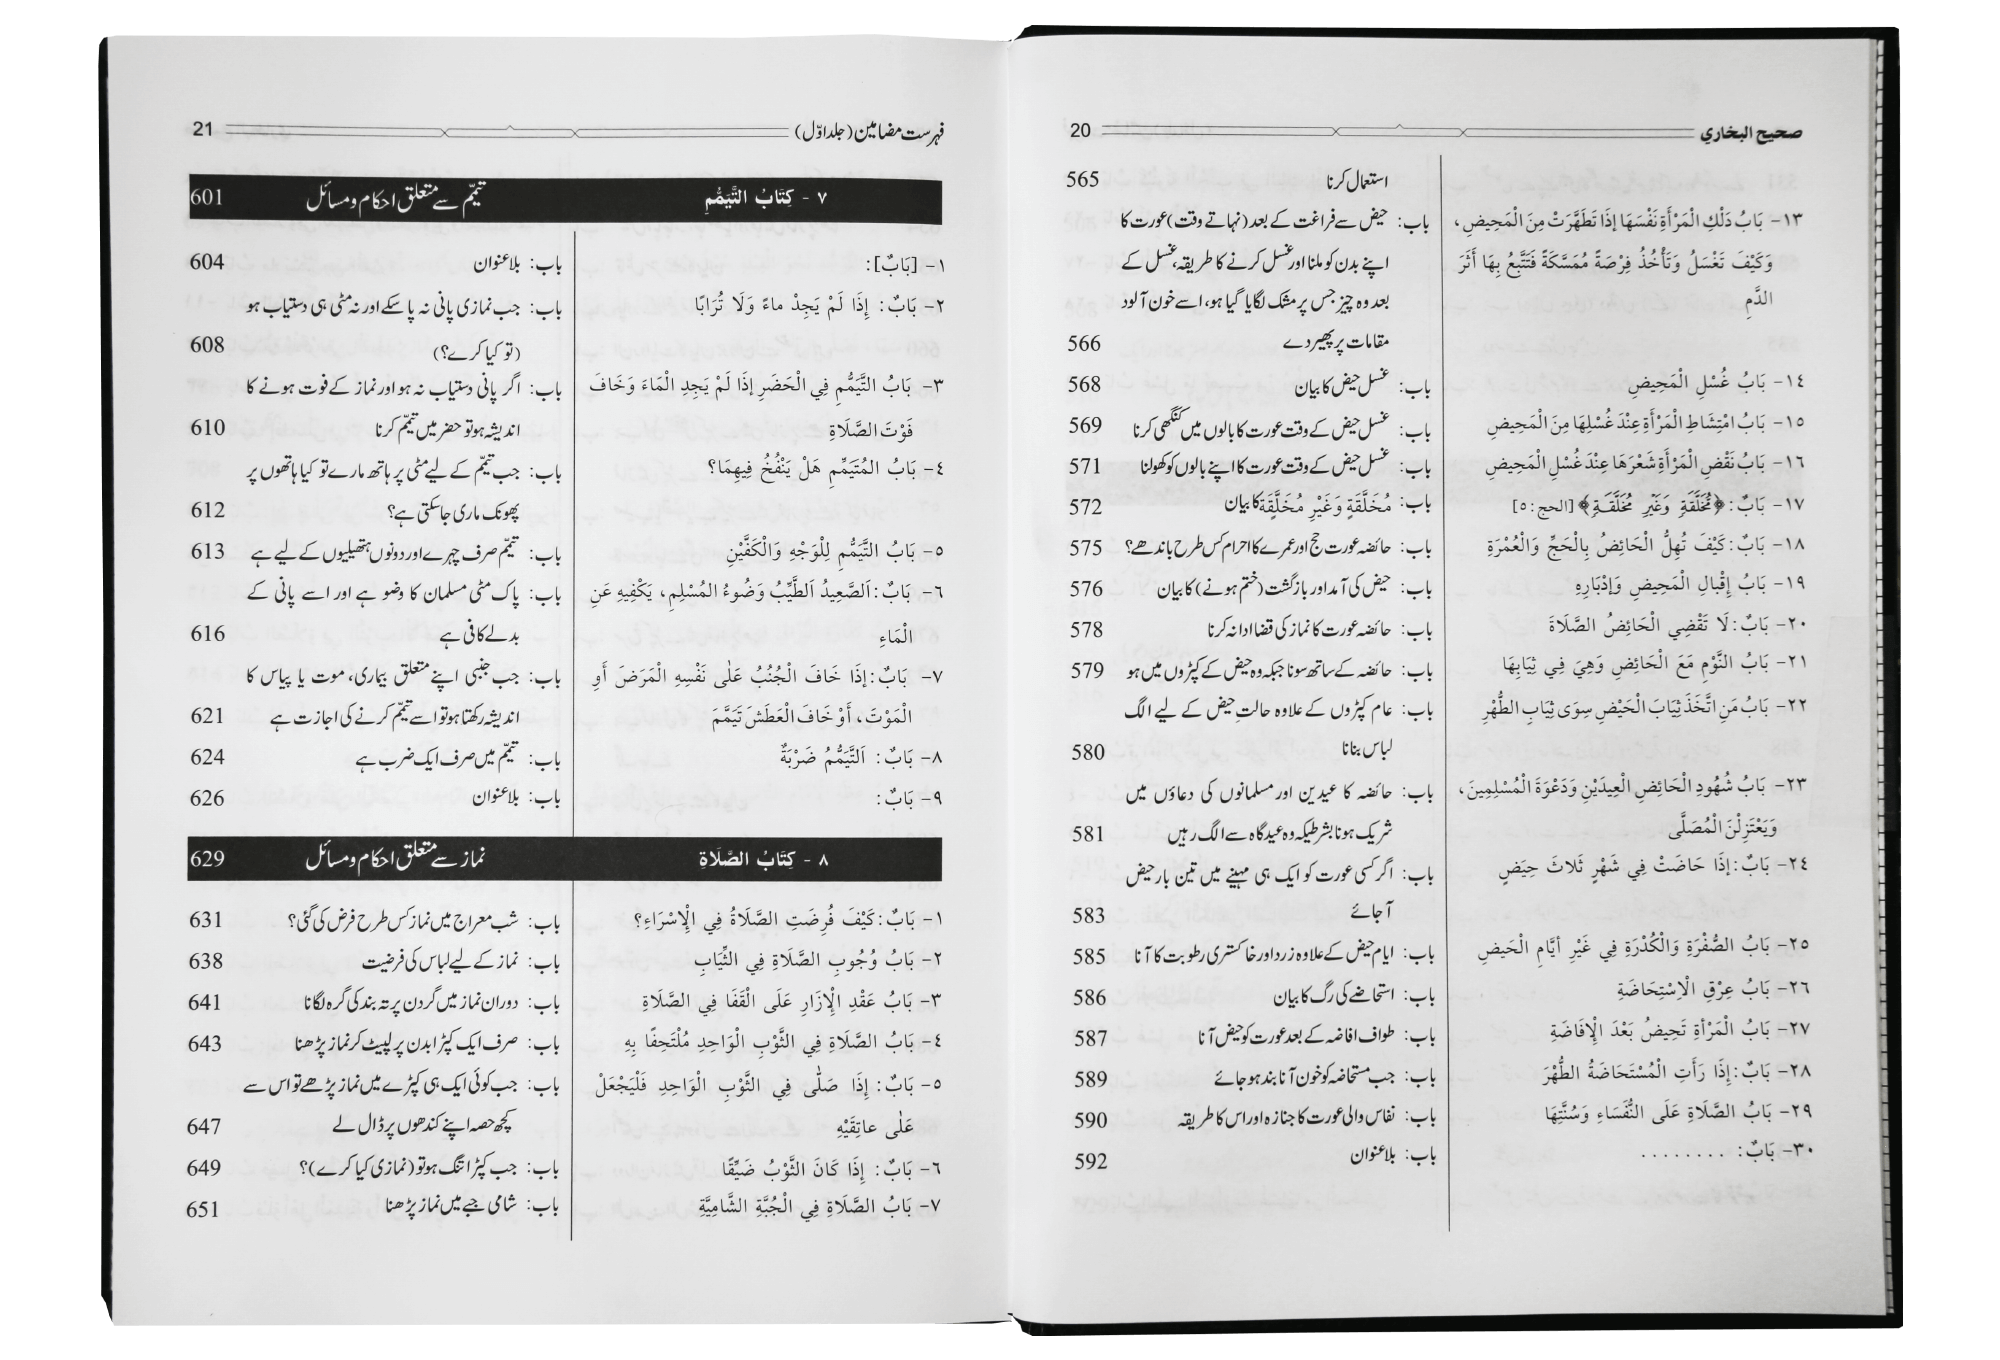 صحيح البخاري 20
استعمال کرنا 565
١٣- بَابُ دَلْكِ الْمَرْأَةِ نَفْسَهَا إِذَا تَطَهَّرَتْ مِنَ الْمَحِيضِ، باب: حیض سے فراغت کے بعد (نہاتے وقت) عورت کا
وَكَيْفَ تَغْسَلُ وَتَأْخُذُ فِرْصَةً مُمَسَّكَةً فَتَتَّبِعُ بِهَا أَثَرَ اپنے بدن کو ملنا اور غسل کرنے کا طریقہ، غسل کے
الدَّمِ بعد وہ چیز جس پر مشک لگایا گیا ہو، اسے خون آلود
مقامات پر پھیر دے 566
١٤- بَابُ غُسْلِ الْمَحِيضِ باب: غسل حیض کا بیان 568
١٥- بَابُ امْتِشَاطِ الْمَرْأَةِ عِنْدَ غُسْلِهَا مِنَ الْمَحِيضِ باب: غسل حیض کے وقت عورت کا بالوں میں کنگھی کرنا 569
١٦- بَابُ نَقْضِ الْمَرْأَةِ شَعْرَهَا عِنْدَ غُسْلِ الْمَحِيضِ باب: غسل حیض کے وقت عورت کا اپنے بالوں کو کھولنا 571
١٧- بَابٌ: ﴿مُخَلَّقَةٍ وَغَيْرِ مُخَلَّقَةٍ﴾ [الحج: ٥] باب: مُخَلَّقَةٍ وَغَيْرِ مُخَلَّقَةٍ کا بیان 572
١٨- بَابٌ: كَيْفَ تُهِلُّ الْحَائِضُ بِالْحَجِّ وَالْعُمْرَةِ باب: حائضہ عورت حج اور عمرے کا احرام کس طرح باندھے؟ 575
١٩- بَابُ إِقْبَالِ الْمَحِيضِ وَإِدْبَارِهِ باب: حیض کی آمد اور بازگشت (ختم ہونے) کا بیان 576
٢٠- بَابٌ: لَا تَقْضِي الْحَائِضُ الصَّلَاةَ باب: حائضہ عورت کا نماز کی قضا ادا نہ کرنا 578
٢١- بَابُ النَّوْمِ مَعَ الْحَائِضِ وَهِيَ فِي ثِيَابِهَا باب: حائضہ کے ساتھ سونا جبکہ وہ حیض کے کپڑوں میں ہو 579
٢٢- بَابُ مَنِ اتَّخَذَ ثِيَابَ الْحَيْضِ سِوَى ثِيَابِ الطُّهْرِ باب: عام کپڑوں کے علاوہ حالتِ حیض کے لیے الگ
لباس بنانا 580
٢٣- بَابُ شُهُودِ الْحَائِضِ الْعِيدَيْنِ وَدَعْوَةَ الْمُسْلِمِينَ، باب: حائضہ کا عیدین اور مسلمانوں کی دعاؤں میں
وَيَعْتَزِلْنَ الْمُصَلَّى شریک ہونا بشرطیکہ وہ عیدگاہ سے الگ رہیں 581
٢٤- بَابٌ: إِذَا حَاضَتْ فِي شَهْرٍ ثَلَاثَ حِيَضٍ باب: اگر کسی عورت کو ایک ہی مہینے میں تین بار حیض
آجائے 583
٢٥- بَابُ الصُّفْرَةِ وَالْكُدْرَةِ فِي غَيْرِ أَيَّامِ الْحَيضِ باب: ایام حیض کے علاوہ زرد اور خاکستری رطوبت کا آنا 585
٢٦- بَابُ عِرْقِ الْاِسْتِحَاضَةِ باب: استحاضے کی رگ کا بیان 586
٢٧- بَابُ الْمَرْأَةِ تَحِيضُ بَعْدَ الْإِفَاضَةِ باب: طواف افاضہ کے بعد عورت کو حیض آنا 587
٢٨- بَابٌ: إِذَا رَأَتِ الْمُسْتَحَاضَةُ الطُّهْرَ باب: جب مستحاضہ کو خون آنا بند ہو جائے 589
٢٩- بَابُ الصَّلَاةِ عَلَى النُّفَسَاءِ وَسُنَّتِهَا باب: نفاس والی عورت کا جنازہ اور اس کا طریقہ 590
٣٠- بَابٌ: ........ باب: بلا عنوان 592
فہرست مضامین (جلد اوّل) 21
٧ - كِتَابُ التَّيَمُّمِ تیمّم سے متعلق احکام و مسائل 601
١- [بَابٌ]: باب: بلا عنوان 604
٢- بَابٌ: إِذَا لَمْ يَجِدْ ماءً وَلَا تُرَابًا باب: جب نمازی پانی نہ پا سکے اور نہ مٹی ہی دستیاب ہو
(تو کیا کرے؟) 608
٣- بَابُ التَّيَمُّمِ فِي الْحَضَرِ إِذَا لَمْ يَجِدِ الْمَاءَ وَخَافَ باب: اگر پانی دستیاب نہ ہو اور نماز کے فوت ہونے کا
فَوْتَ الصَّلَاةِ اندیشہ ہو تو حضر میں تیمّم کرنا 610
٤- بَابُ المُتَيَمِّمِ هَلْ يَنْفُخُ فِيهِمَا؟ باب: جب تیمّم کے لیے مٹی پر ہاتھ مارے تو کیا ہاتھوں پر
پھونک ماری جاسکتی ہے؟ 612
٥- بَابُ التَّيَمُّمِ لِلْوَجْهِ وَالْكَفَّيْنِ باب: تیمّم صرف چہرے اور دونوں ہتھیلیوں کے لیے ہے 613
٦- بَابٌ: اَلصَّعِيدُ اَلطَّيِّبُ وَضُوءُ المُسْلِمِ، يَكْفِيهِ عَنِ باب: پاک مٹی مسلمان کا وضو ہے اور اسے پانی کے
الْمَاءِ بدلے کافی ہے 616
٧- بَابٌ: إِذَا خَافَ الْجُنُبُ عَلٰى نَفْسِهِ الْمَرَضَ أَوِ باب: جب جنبی اپنے متعلق بیماری، موت یا پیاس کا
الْمَوْتَ، أَوْ خَافَ الْعَطَشَ تَيَمَّمَ اندیشہ رکھتا ہو تو اسے تیمّم کرنے کی اجازت ہے 621
٨- بَابٌ: اَلتَّيَمُّمُ ضَرْبَةٌ باب: تیمّم میں صرف ایک ضرب ہے 624
٩- بَابٌ: باب: بلا عنوان 626
٨ - كِتَابُ الصَّلَاةِ نماز سے متعلق احکام و مسائل 629
١- بَابٌ: كَيْفَ فُرِضَتِ الصَّلَاةُ فِي الْإِسْرَاءِ؟ باب: شب معراج میں نماز کس طرح فرض کی گئی؟ 631
٢- بَابُ وُجُوبِ الصَّلَاةِ فِي الثِّيَابِ باب: نماز کے لیے لباس کی فرضیت 638
٣- بَابُ عَقْدِ الْإِزَارِ عَلَى الْقَفَا فِي الصَّلَاةِ باب: دوران نماز میں گردن پر تہ بند کی گرہ لگانا 641
٤- بَابُ الصَّلَاةِ فِي الثَّوْبِ الْوَاحِدِ مُلْتَحِفًا بِهِ باب: صرف ایک کپڑا بدن پر لپیٹ کر نماز پڑھنا 643
٥- بَابٌ: إِذَا صَلّٰى فِي الثَّوْبِ الْوَاحِدِ فَلْيَجْعَلْ باب: جب کوئی ایک ہی کپڑے میں نماز پڑھے تو اس سے
عَلٰى عاتِقَيْهِ کچھ حصہ اپنے کندھوں پر ڈال لے 647
٦- بَابٌ: إِذَا كَانَ الثَّوْبُ ضَيِّقًا باب: جب کپڑا تنگ ہو تو (نمازی کیا کرے)؟ 649
٧- بَابُ الصَّلَاةِ فِي الْجُبَّةِ الشَّامِيَّةِ باب: شامی جبے میں نماز پڑھنا 651